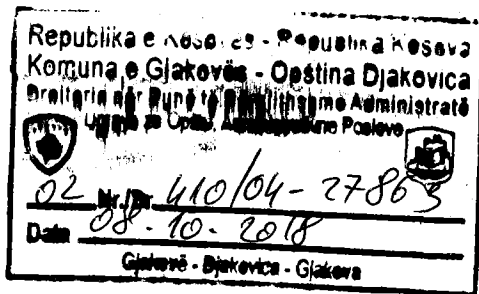 Republika e Kosovës - Republika Kosova
Komuna e Gjakovës - Opština Djakovica
Drejtoria për Punë të Administratë
Uprava za Poslove
02 Nr./Br. 410/04-27863
Data 08-10-2018
Gjakovë - Djakovica - Gjakova